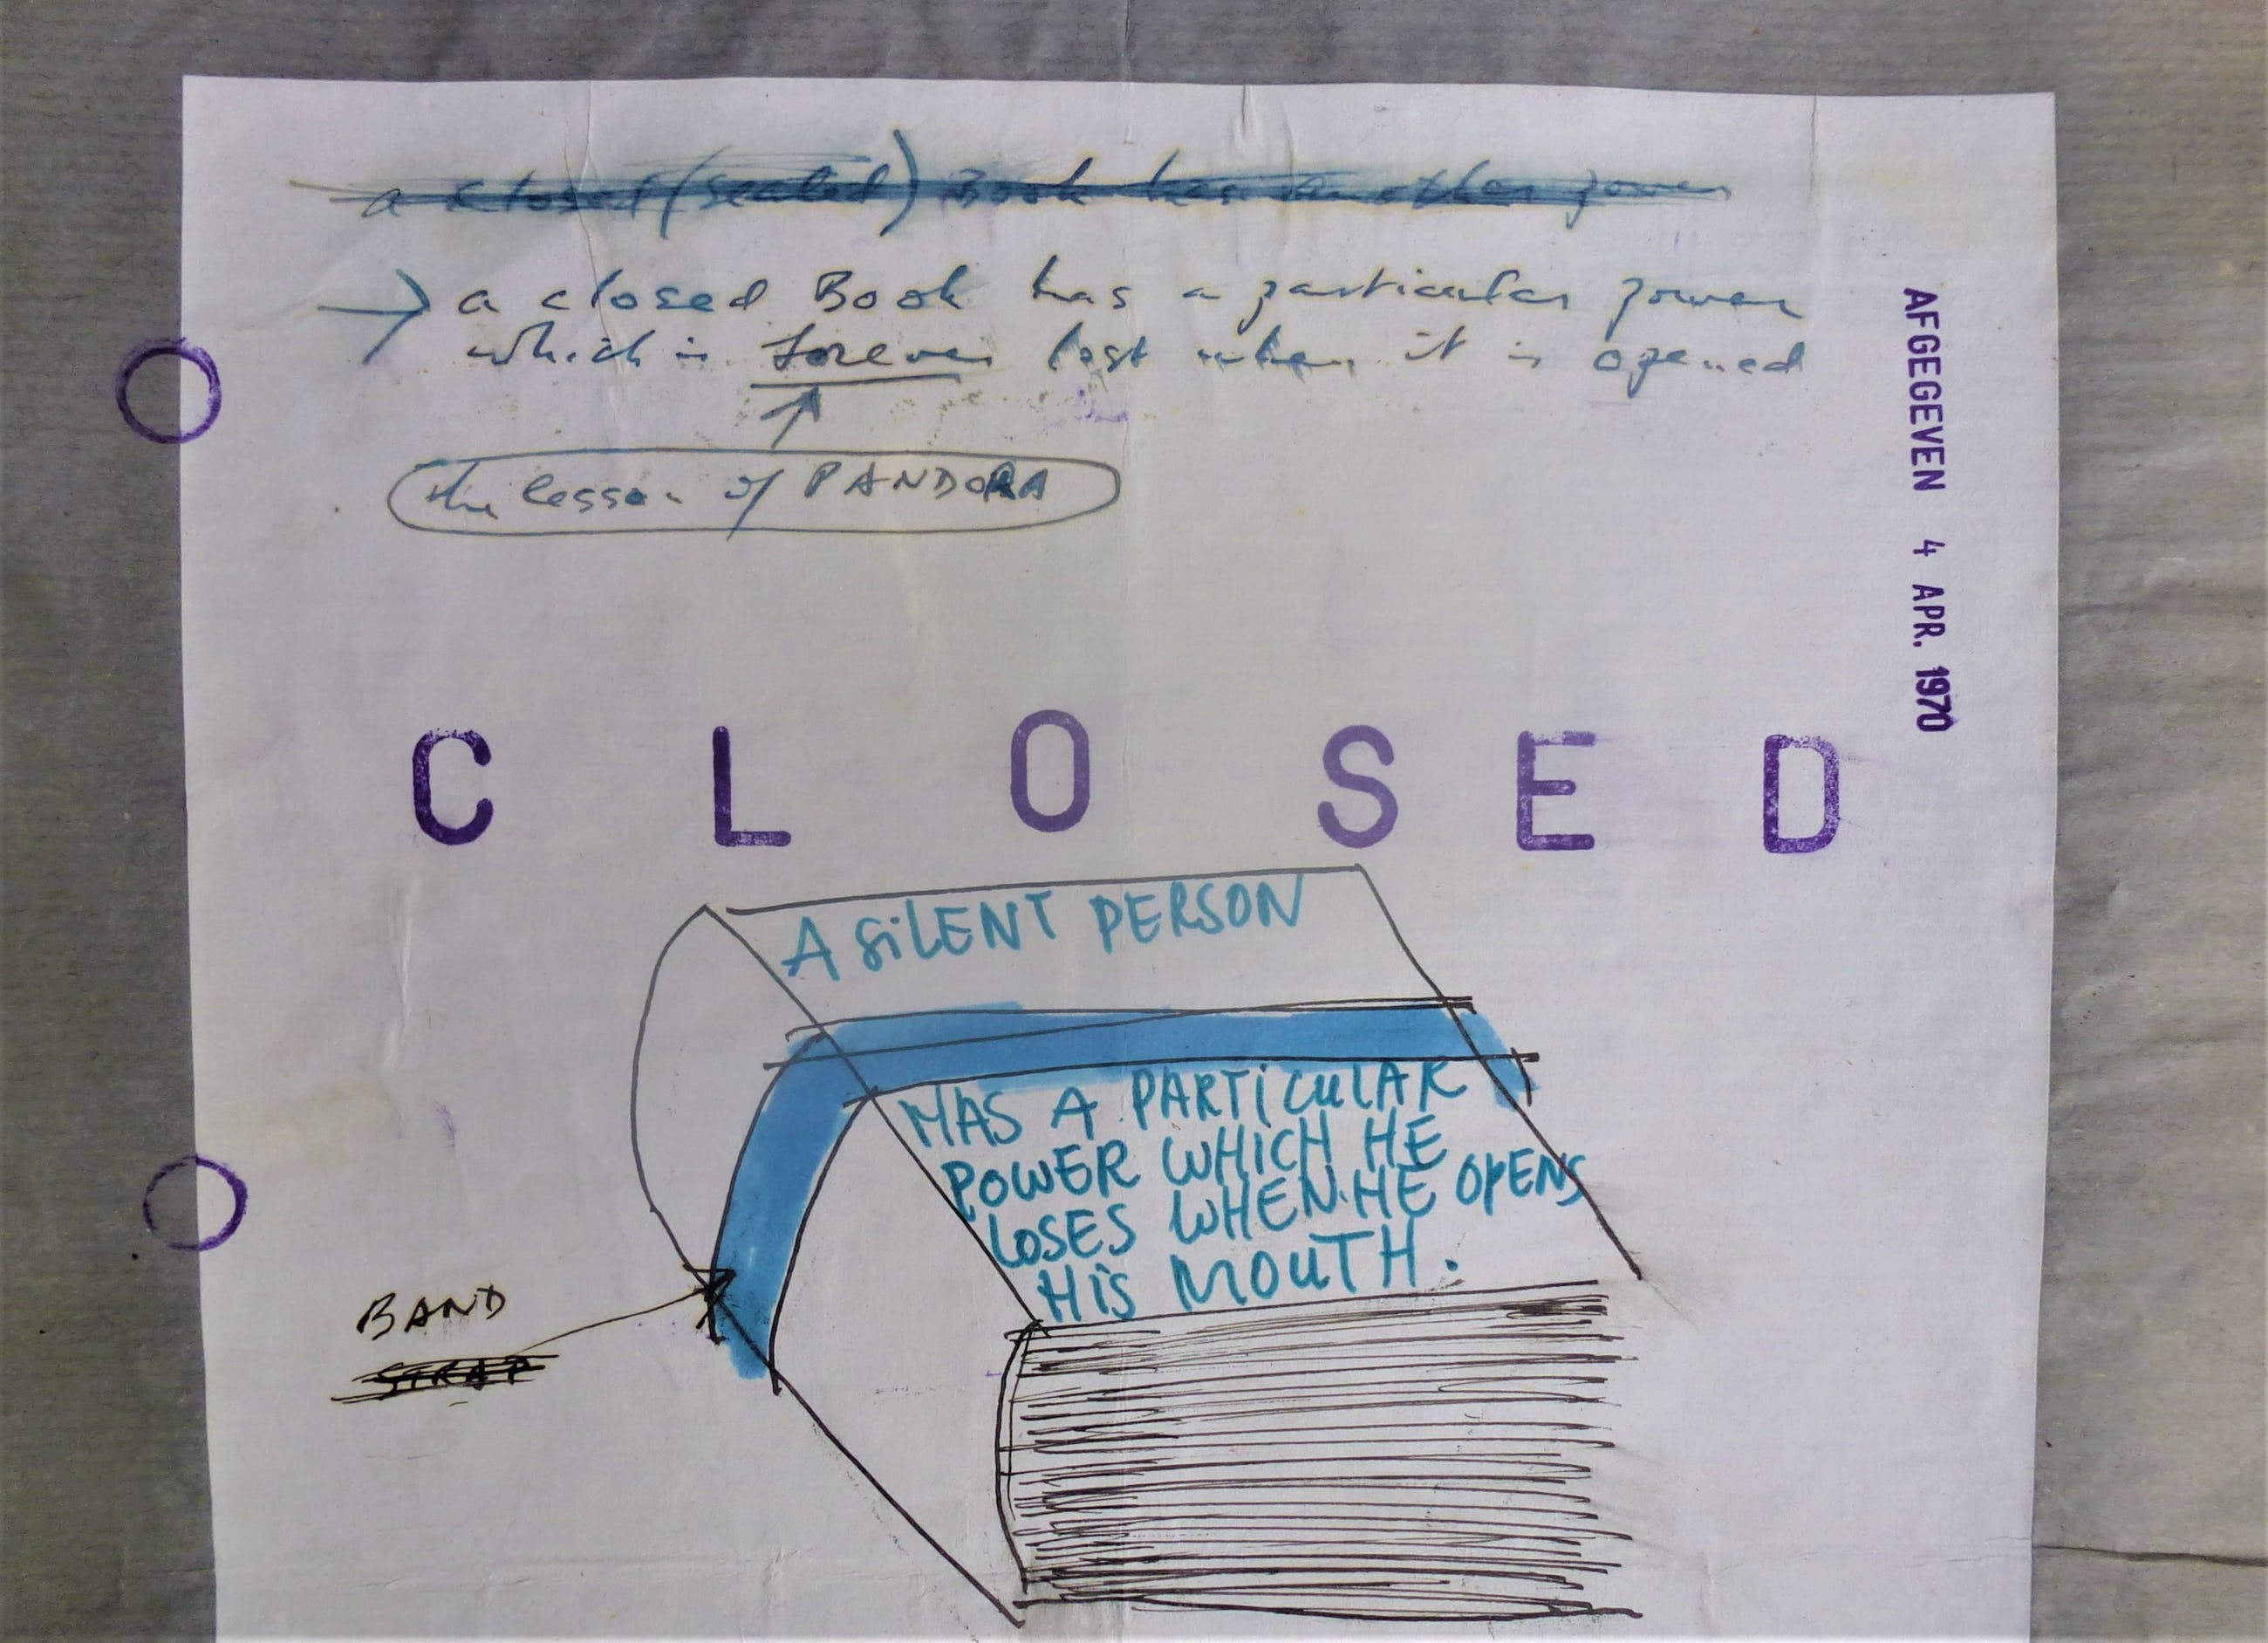 a closed (sealed) Book has another power
→ a closed Book has a particular power
which is forever lost when it is opened
the lesson of PANDORA
AFGEGEVEN 4 APR. 1970
C L O S E D
A SiLENT PERSON
HAS A PARTiCULAR
POWER WHiCH HE
LOSES WHEN HE OPENS
HiS MOUTH.
BAND
STRAP